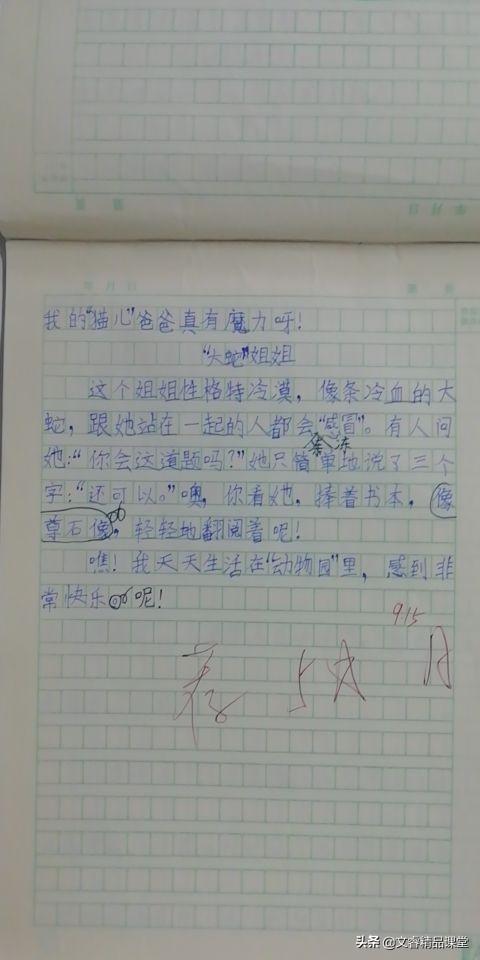 年 月 日
我的“猫儿”爸爸真有魔力呀！
“大蛇”姐姐
这个姐姐性格特冷漠，像条冷血的大
蛇，跟她站在一起的人都会“感冒”。有人问
她：“你会这道题吗？”她只简单地说了三个
字：“还可以。”噢，你看她，捧着书本，像
尊石像，轻轻地翻阅着呢！
瞧！我天天生活在“动物园”里，感到非
常快乐呢！
9.15
头条 @文睿精品课堂